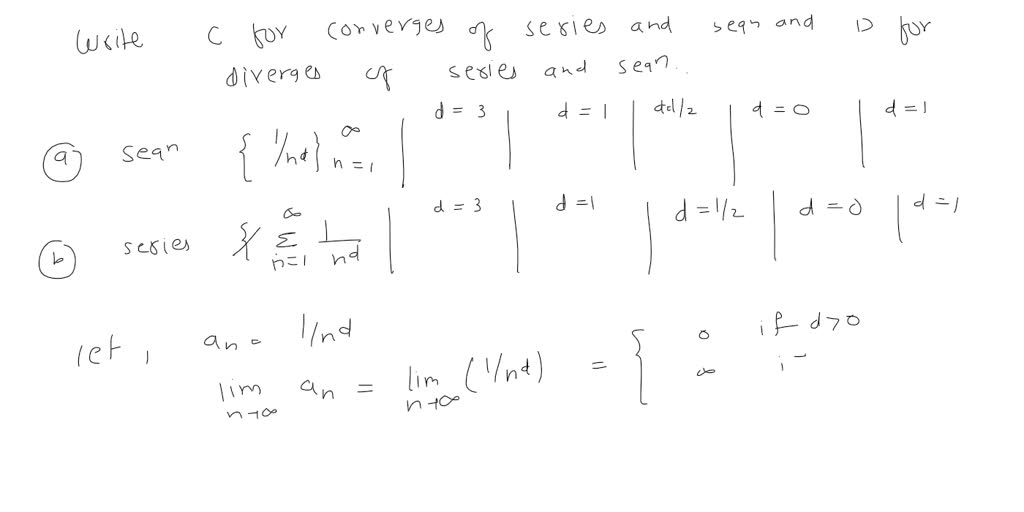 Write C for converges of series and seqn and D for
diverges of series and seqn.
(a) seqn { 1/n^d }_{n=1}^∞ | d = 3 | d = 1 | d=1/2 | d = 0 | d = 1
(b) series ∑_{n=1}^∞ 1/n^d | d = 3 | d = 1 | d = 1/2 | d = 0 | d = 1
let, a_n = 1/n^d
lim_{n→∞} a_n = lim_{n→∞} (1/n^d) = { 0 if d>0
∞ i